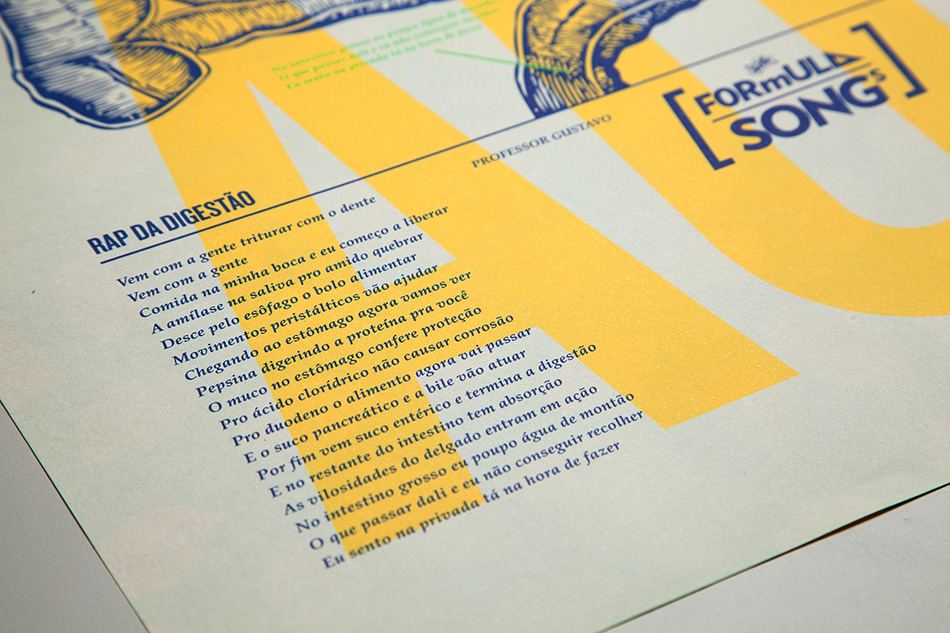 No intestino grosso eu poupo água de montão
O que passar dali e eu não conseguir recolher
Eu sento na privada tá na hora de fazer
FORmULA
SONGS
PROFESSOR GUSTAVO
RAP DA DIGESTÃO
Vem com a gente triturar com o dente
Vem com a gente
Comida na minha boca e eu começo a liberar
A amílase na saliva pro amido quebrar
Desce pelo esôfago o bolo alimentar
Movimentos peristálticos vão ajudar
Chegando ao estômago agora vamos ver
Pepsina digerindo a proteína pra você
O muco no estômago confere proteção
Pro ácido clorídrico não causar corrosão
Pro duodeno o alimento agora vai passar
E o suco pancreático e a bile vão atuar
Por fim vem suco entérico e termina a digestão
E no restante do intestino tem absorção
As vilosidades do delgado entram em ação
No intestino grosso eu poupo água de montão
O que passar dali e eu não conseguir recolher
Eu sento na privada tá na hora de fazer